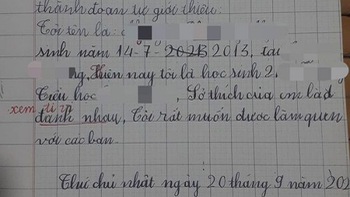 thành đoạn tự giới thiệu.
Tôi tên là:
sinh năm 14-7-2023 2013, tại
Hiện nay tôi là học sinh 2,
Tiểu học , Sở thích của em là đ
xem ti vi
đánh nhau, Tôi rất muốn được làm quen
với các bạn.
Thứ chủ nhật ngày 20 tháng 9 năm 202